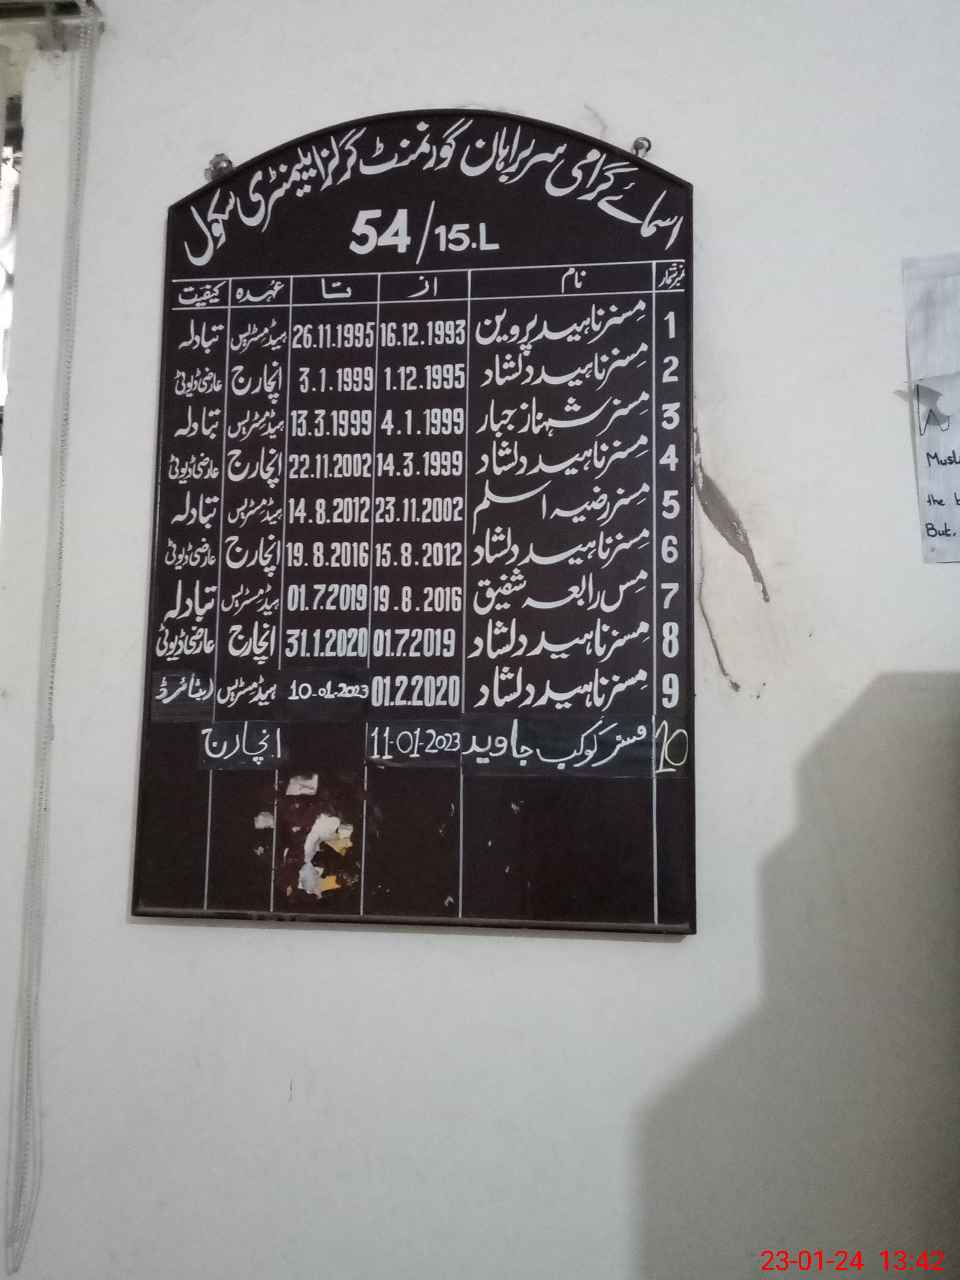 اسمائے گرامی سربراہان گورنمنٹ گرلز ایلیمنٹری سکول
54/15.L
نمبر شمار نام از تا عہدہ کیفیت
1 مسز ناہید پروین 16.12.1993 26.11.1995 ہیڈمسٹریس تبادلہ
2 مسز ناہید دلشاد 1.12.1995 3.1.1999 انچارج عارضی ڈیوٹی
3 مسز شہناز جبار 4.1.1999 13.3.1999 ہیڈمسٹریس تبادلہ
4 مسز ناہید دلشاد 14.3.1999 22.11.2002 انچارج عارضی ڈیوٹی
5 مسز رضیہ اسلم 23.11.2002 14.8.2012 ہیڈمسٹریس تبادلہ
6 مسز ناہید دلشاد 15.8.2012 19.8.2016 انچارج عارضی ڈیوٹی
7 مس رابعہ شفیق 19.8.2016 01.7.2019 ہیڈمسٹریس تبادلہ
8 مسز ناہید دلشاد 01.7.2019 31.1.2020 انچارج عارضی ڈیوٹی
9 مسز ناہید دلشاد 01.2.2020 10-01-2023 ہیڈمسٹریس ریٹائرڈ
10 مسز کوکب جاوید 11-01-2023 انچارج
the
But.
23-01-24 13:42